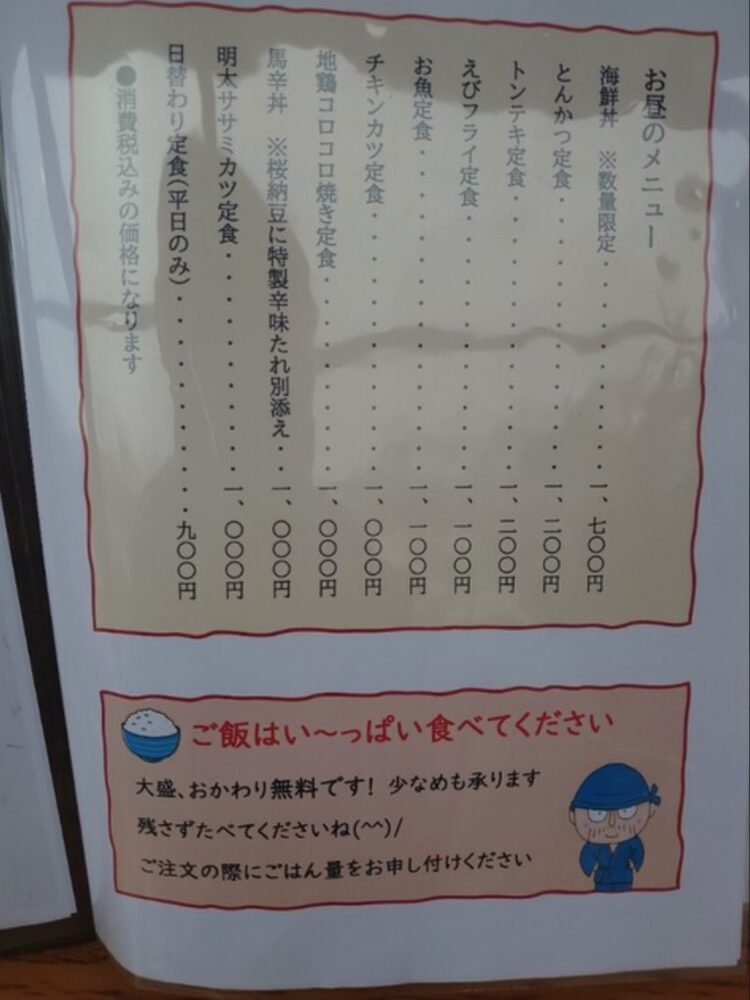 お昼のメニュー
海鮮丼 ※数量限定・・・・・・・・・・一、七〇〇円
とんかつ定食・・・・・・・・・・・・一、二〇〇円
トンテキ定食・・・・・・・・・・・・一、二〇〇円
えびフライ定食・・・・・・・・・・・一、一〇〇円
お魚定食・・・・・・・・・・・・・・一、一〇〇円
チキンカツ定食・・・・・・・・・・・一、〇〇〇円
地鶏コロコロ焼き定食・・・・・・・・一、〇〇〇円
馬辛丼 ※桜納豆に特製辛味たれ別添え・・一、〇〇〇円
明太ササミカツ定食・・・・・・・・・・一、〇〇〇円
日替わり定食(平日のみ)・・・・・・・・・・九〇〇円
●消費税込みの価格になります
ご飯はい~っぱい食べてください
大盛、おかわり無料です! 少なめも承ります
残さずたべてくださいね(^^)/
ご注文の際にごはん量をお申し付けください